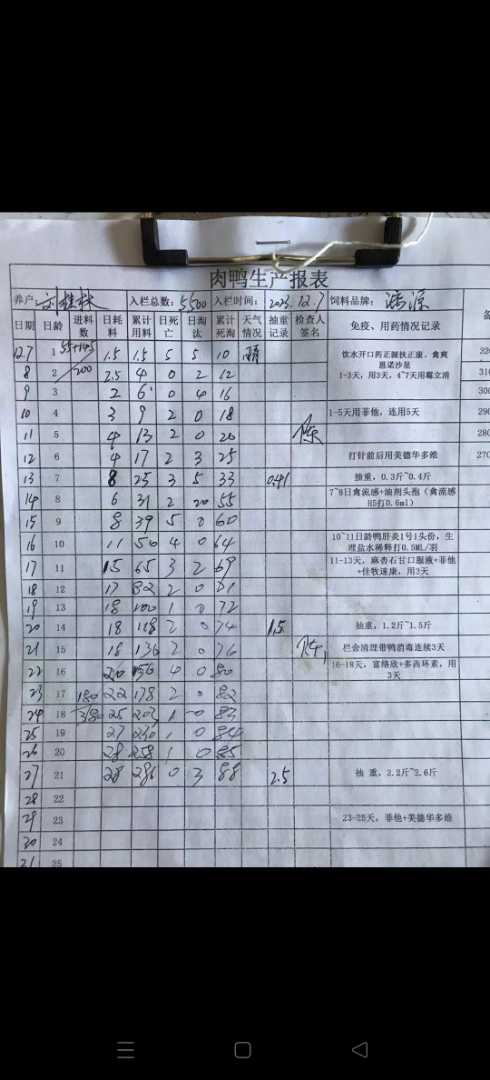 肉鸭生产报表
养户: 入栏总数: 5500 入栏时间: 2023.12.7 饲料品牌:
日期 日龄 进料数 日耗料 累计用料 日死亡 日淘汰 累计死淘 天气情况 抽重记录 检查人签名 免疫、用药情况记录 备
12.7 1 1.5 1.5 5 5 10 晴 饮水开口药正源扶正康、禽爽 220
8 2 200 2.5 4 0 2 12 恩诺沙星 310
1-3天,用3天,4~7天用霉立清
9 3 2 6 0 4 16 300
10 4 3 9 2 0 18 1-5天用菲他,连用5天 290
11 5 4 13 2 0 20 陈 280
12 6 4 17 2 3 25 打针前后用美德华多维 270
13 7 8 25 3 5 33 0.41 抽重,0.3斤~0.4斤
14 8 6 31 2 20 55 7~9日禽流感+油剂头孢(禽流感H5打0.6ml)
15 9 8 39 5 0 60
16 10 11 50 4 0 64 10~11日龄鸭肝炎1号1头份,生理盐水稀释打0.5ML/羽
17 11 15 65 3 2 69 11-13天,麻杏石甘口服液+菲他+佳牧速康,用3天
18 12 17 82 2 0 71
19 13 18 100 1 0 72
20 14 18 118 2 0 74 1.5 抽重,1.2斤~1.5斤
21 15 18 136 2 0 76 陈 栏舍清理带鸭消毒连续3天
22 16 20 156 4 0 80 16-18天,富络欣+多西环素,用3天
23 17 180 22 178 2 0 82
24 18 380 25 203 1 0 83
25 19 27 230 1 0 84
26 20 28 258 1 0 85
27 21 28 286 0 3 88 2.5 抽 重,2.2斤~2.6斤
28 22
29 23 23-25天,菲他+美德华多维
30 24
31 25